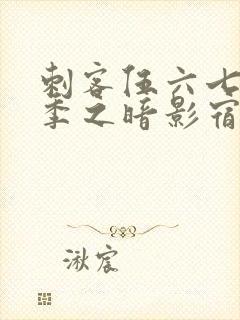 刺客伍六七
季之暗影宿
湫宸